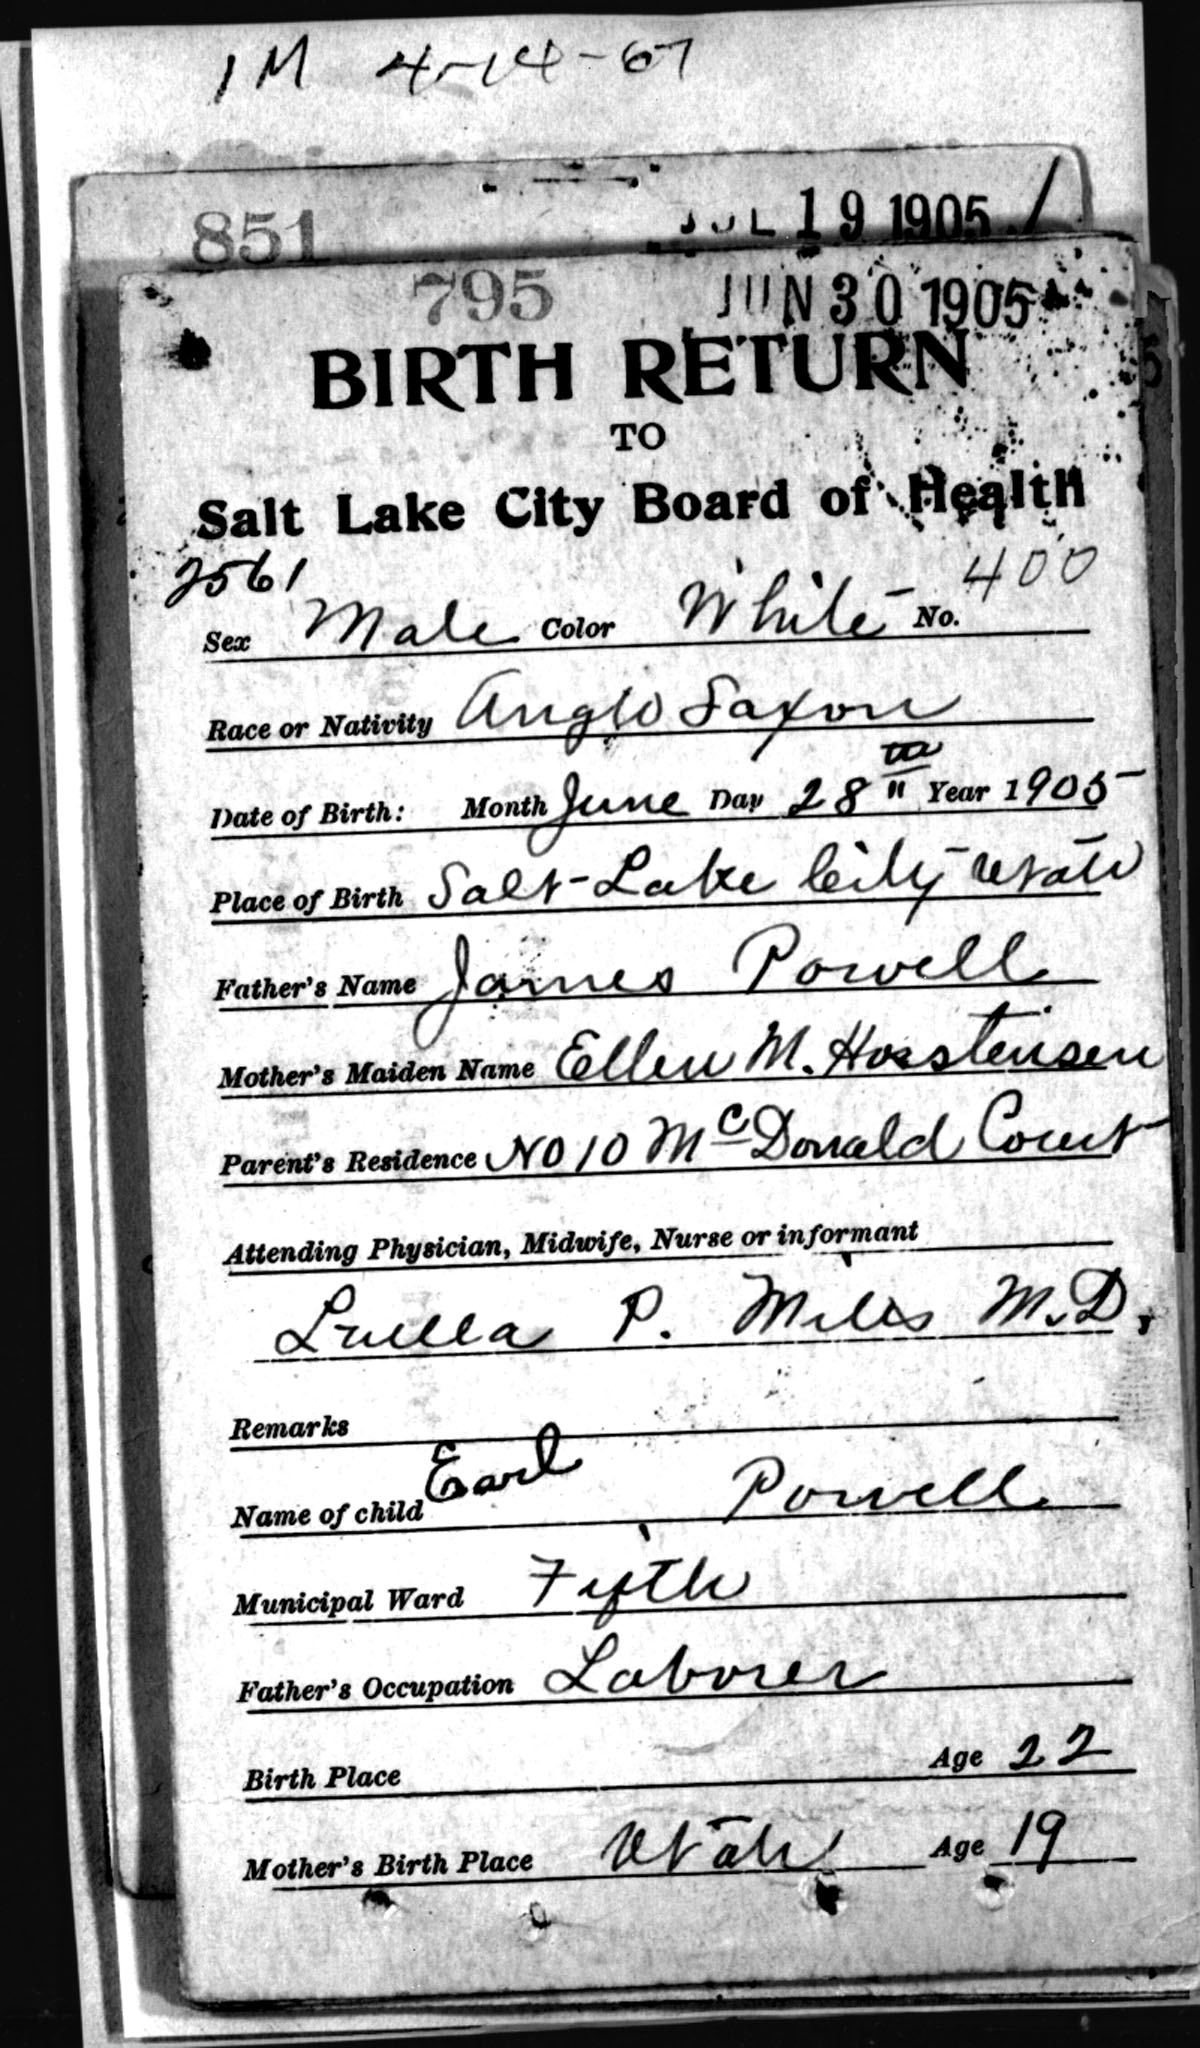 1M 4-14-67
851 JUL 19 1905
795 JUN 30 1905
BIRTH RETURN
TO
Salt Lake City Board of Health
2561
Sex Male Color White No. 400
Race or Nativity Anglo Saxon
Date of Birth: Month June Day 28th Year 1905
Place of Birth Salt Lake City Utah
Father's Name James Powell
Mother's Maiden Name Ellen M. Horstensen
Parent's Residence No 10 McDonald Court
Attending Physician, Midwife, Nurse or informant
Luella P. Miles M.D.
Remarks
Name of child Earl Powell
Municipal Ward Fifth
Father's Occupation Laborer
Birth Place Age 22
Mother's Birth Place Utah Age 19